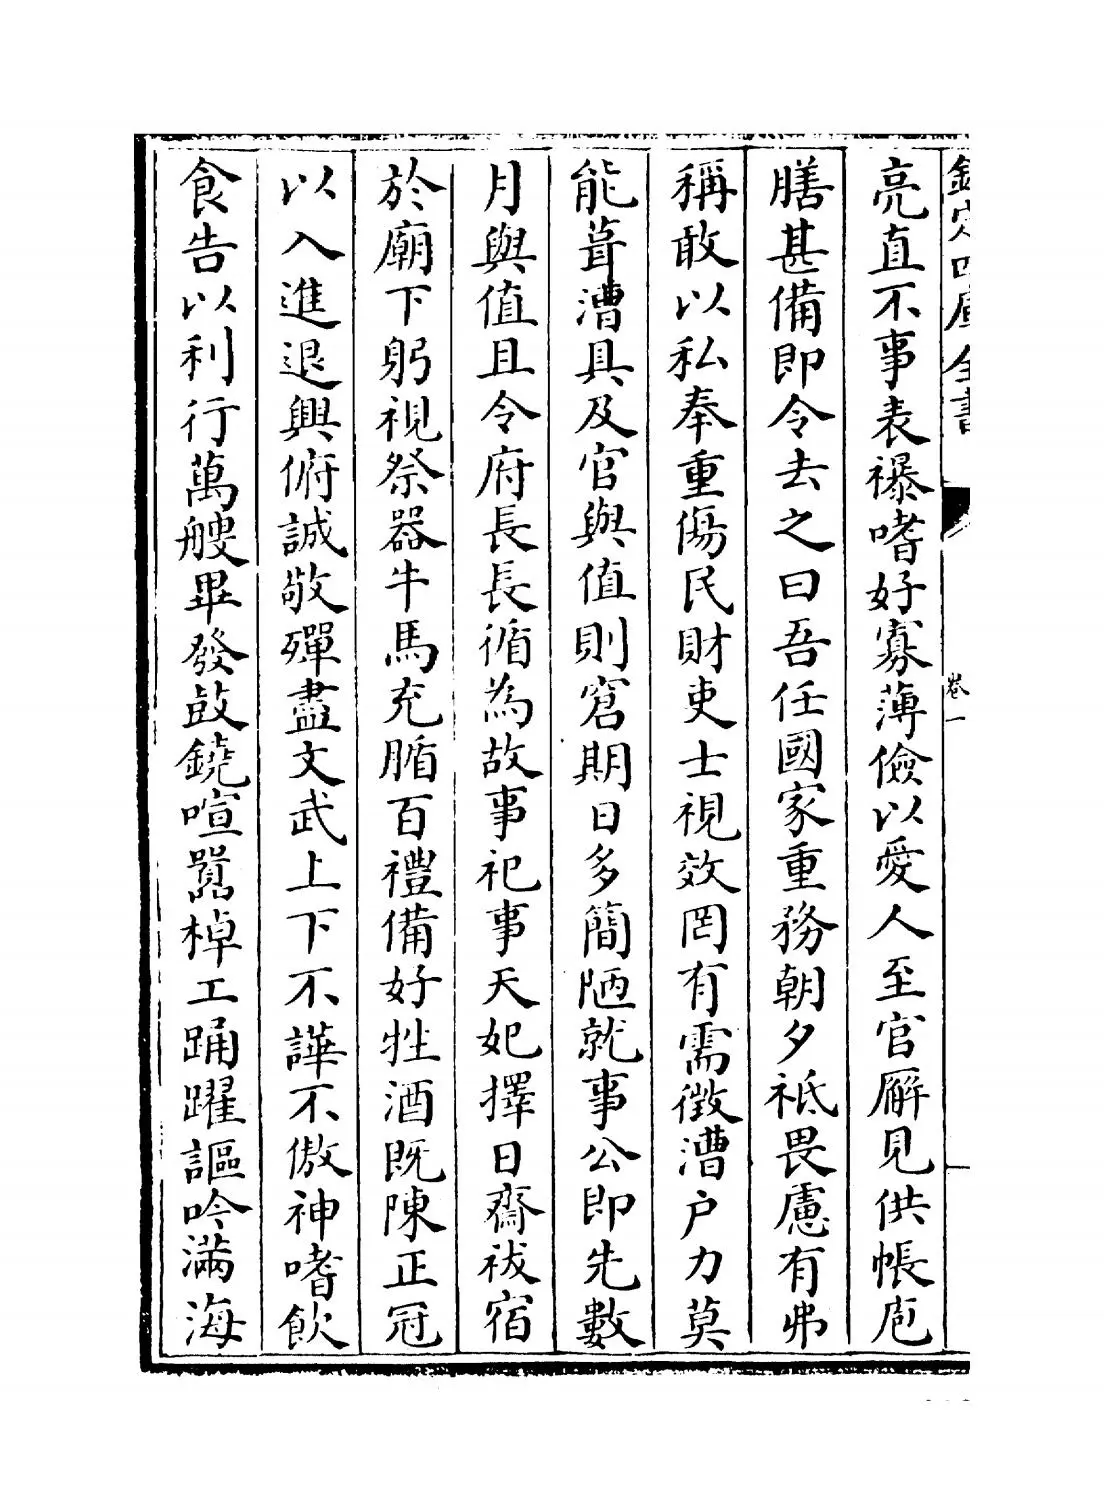 欽定四庫全書
卷一
亮直不事表襮嗜好寡薄儉以愛人至官廨見供帳庖
膳甚備即令去之曰吾任國家重務朝夕祗畏慮有弗
稱敢以私奉重傷民財吏士視效罔有需徵漕户力莫
能葺漕具及官與值則窘期日多簡陋就事公即先數
月與值且令府長長循為故事祀事天妃擇日齋祓宿
於廟下躬視祭器牛馬充腯百禮備好牲酒既陳正冠
以入進退興俯誠敬殫盡文武上下不譁不傲神嗜飲
食告以利行萬艘畢發鼓鐃喧囂棹工踊躍謳吟滿海